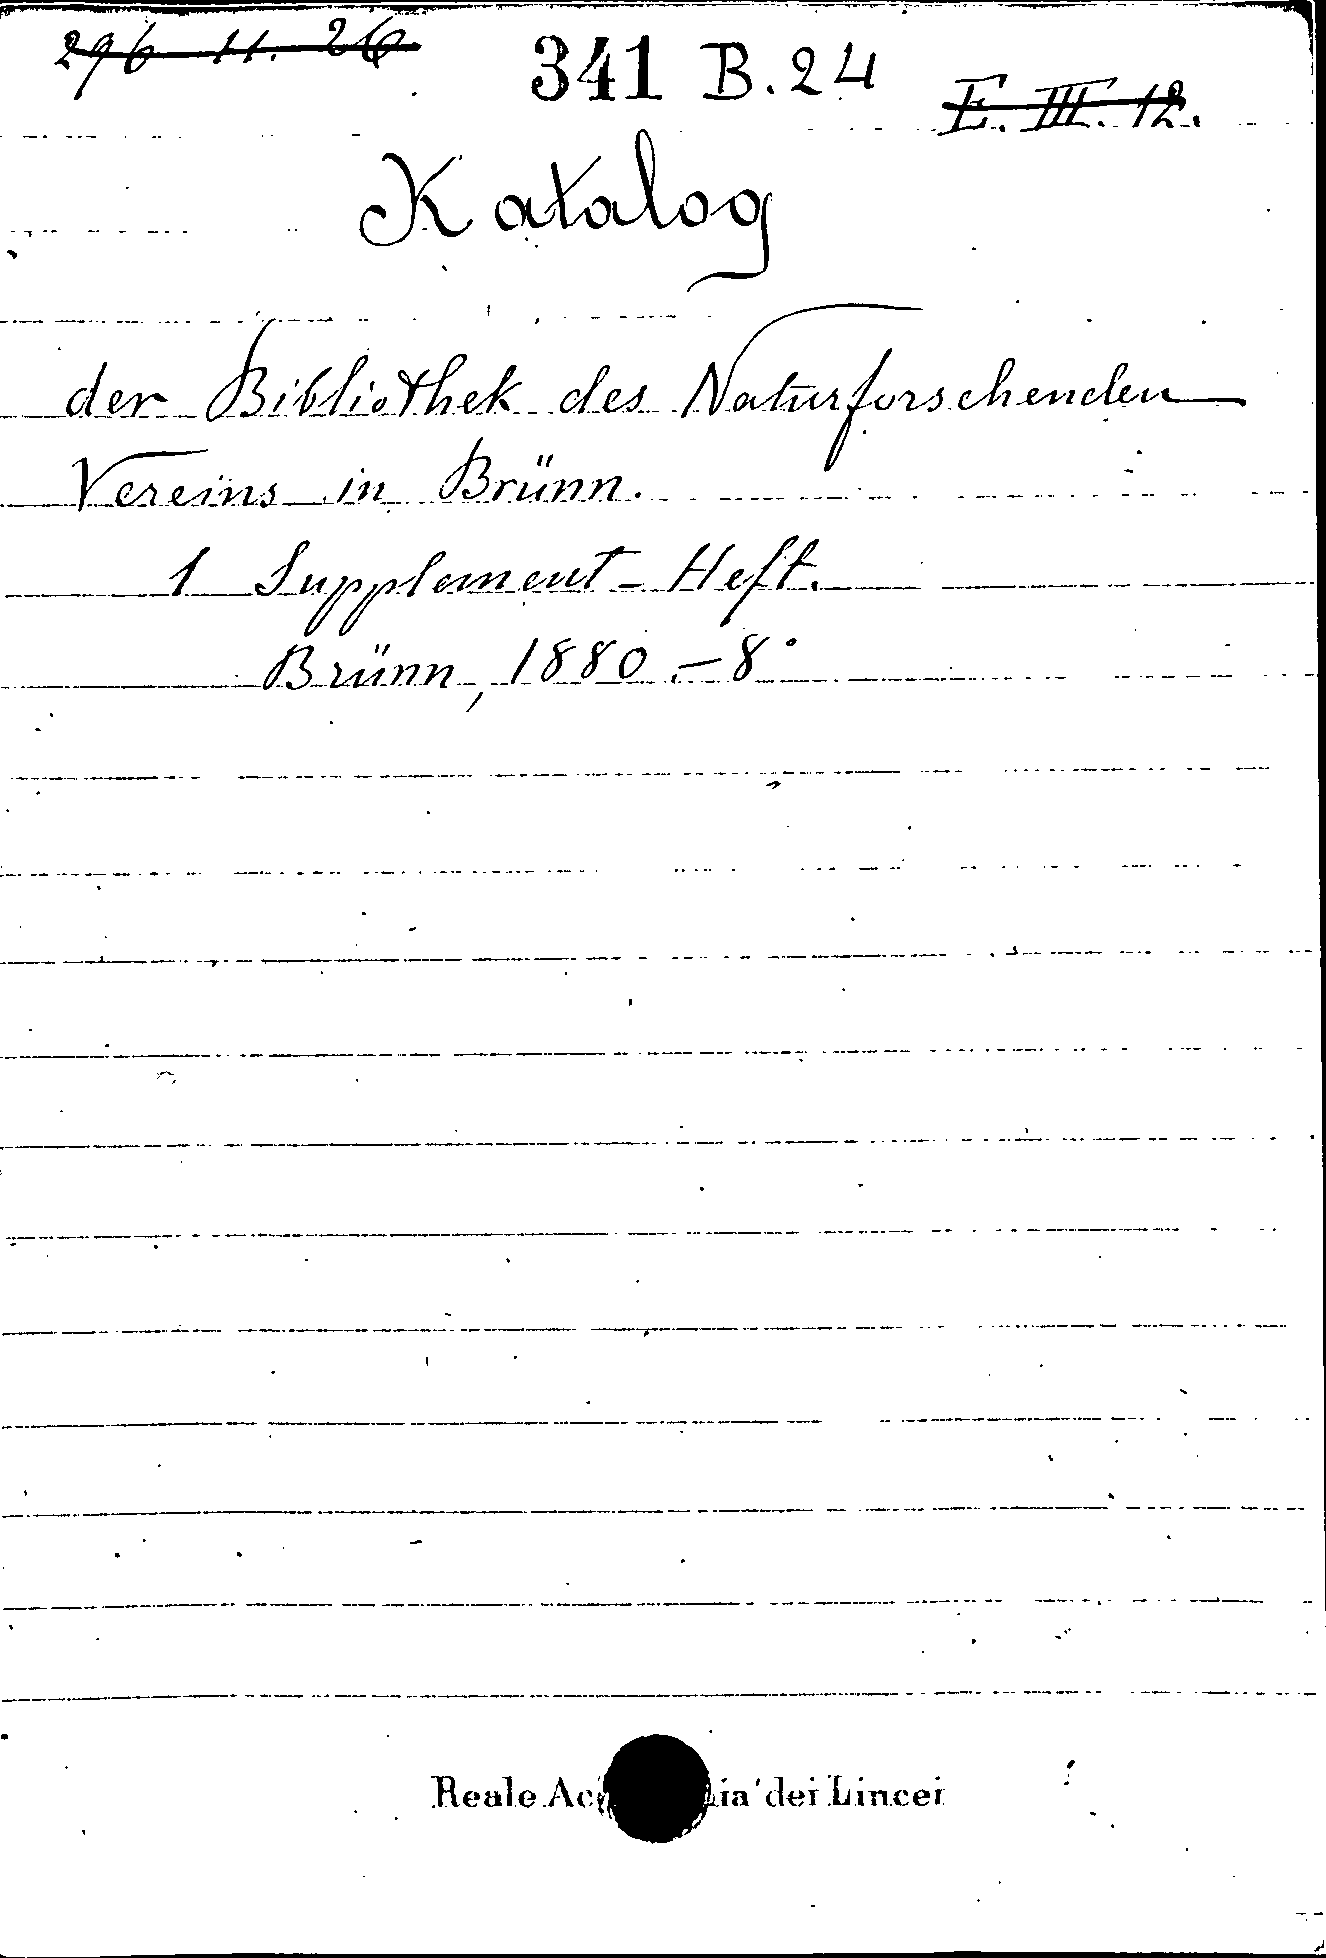 296 11. 26
341 B.24
E. III. 12.
Katalog
der Bibliothek des Naturforschenden
Vereins in Brünn.
1 Supplement-Heft.
Brünn, 1880.-8°
Reale Ac ia dei Lincei